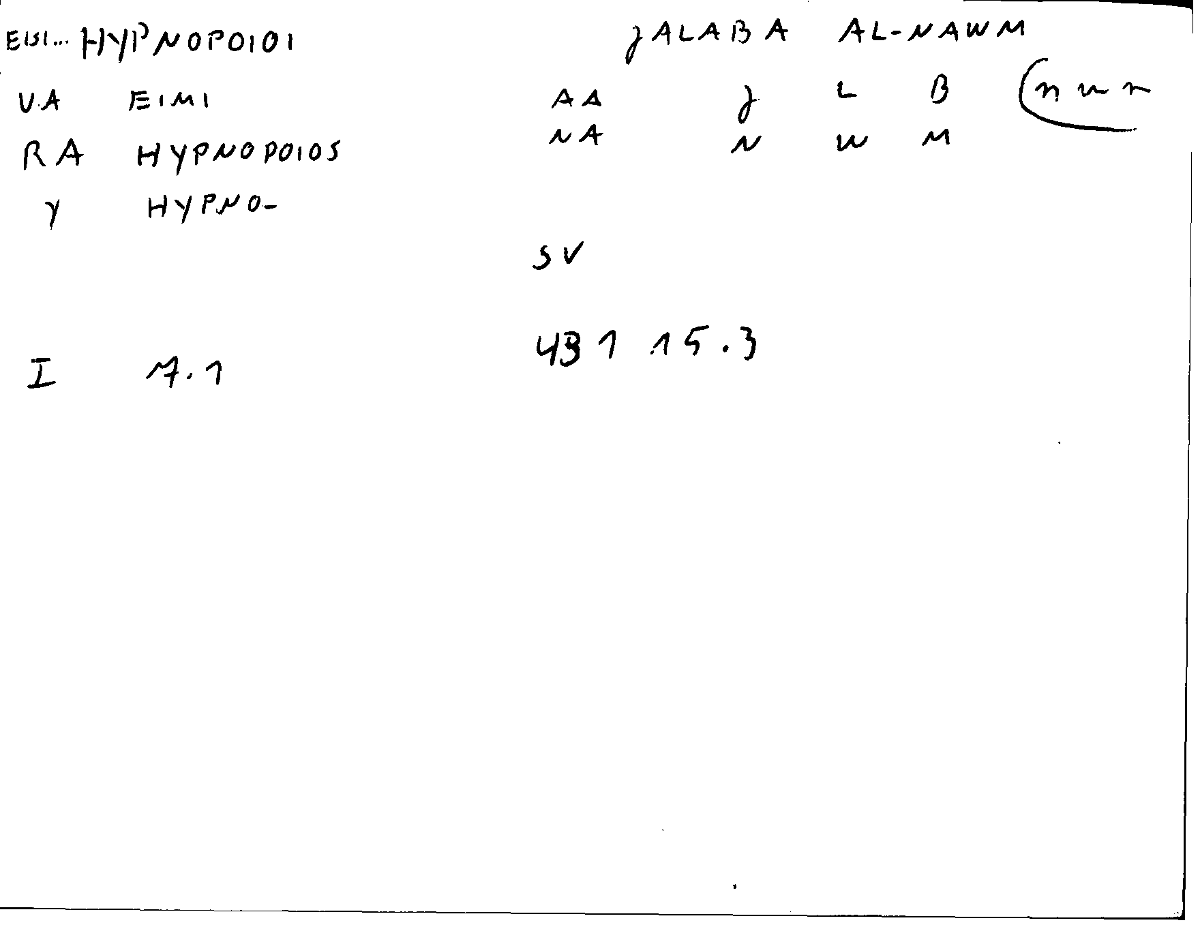 EISI... HYPNOPOIOI JALABA AL-NAWM
VA EIMI AA J L B
RA HYPNOPOIOS NA N W M
Y HYPNO-
SV
I 7.1 431 15.3